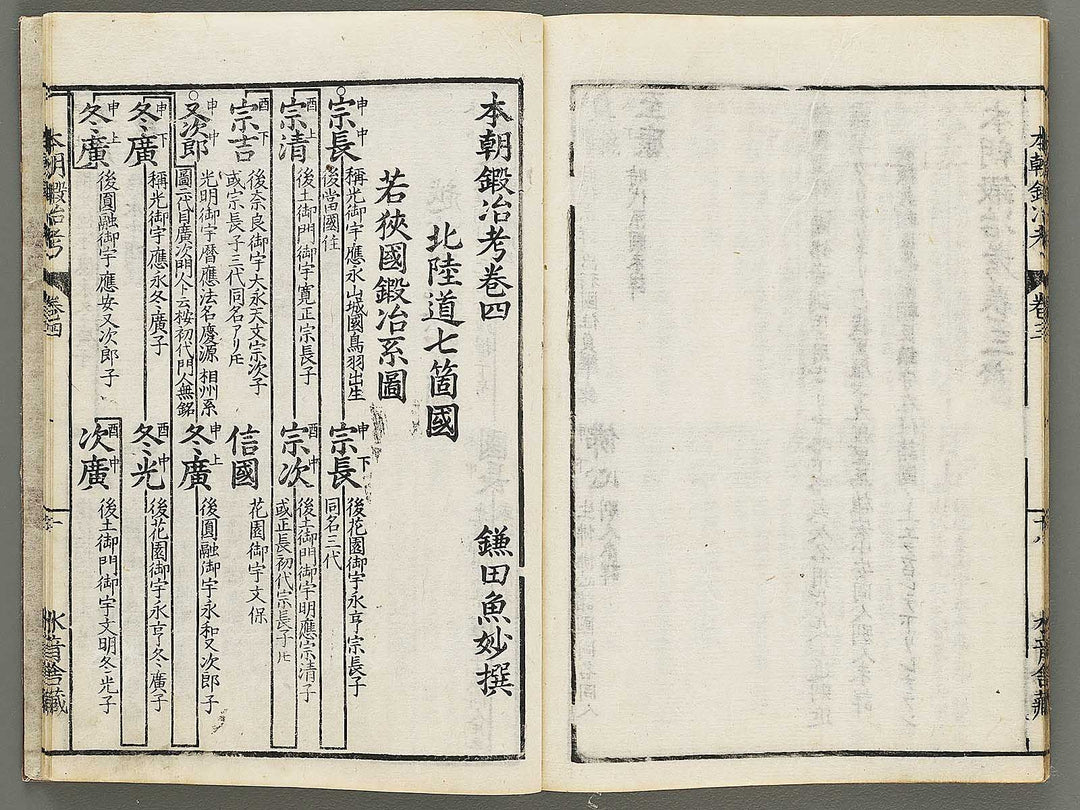 本朝鍛冶考
卷三
十八
水音舎藏
本朝鍛冶考卷四
鎌田魚妙撰
北陸道七箇國
若狹國鍛冶系圖
申中
宗長
稱光御宇應永山城國鳥羽出生
後當國住
申下
宗長
後花園御宇永享宗長子
同名三代
酉上
宗清
後土御門御宇寛正宗長子
酉中
宗次
後土御門御宇明應宗清子
或正長初代宗長子トモ
酉下
宗吉
後奈良御宇大永天文宗次子
或宗長子三代同名アリトモ
信國
花園御宇文保
申中
又次郎
光明御宇暦應法名慶源 相州系
圖二代目廣次門人ト云按初代門人無銘
申上
冬廣
後圓融御宇永和又次郎子
申下
冬廣
稱光御宇應永冬廣子
酉中
冬光
後花園御宇永享冬廣子
申上
冬廣
後圓融御宇應安又次郎子
酉中
次廣
後土御門御宇文明冬光子
本朝鍛冶考
卷四
一
水音舎藏